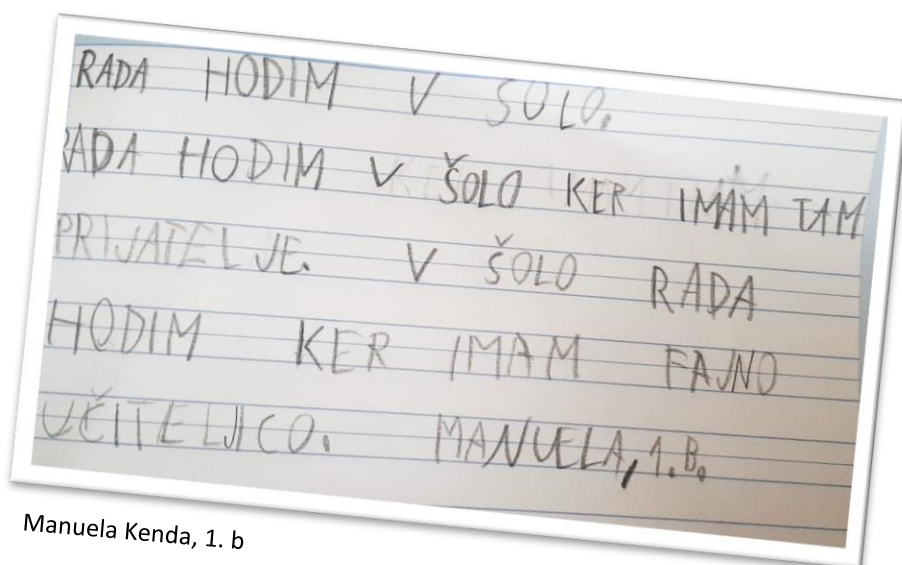 RADA HODIM V ŠOLO.
RADA HODIM V ŠOLO KER IMAM TAM
PRIJATELJE. V ŠOLO RADA
HODIM KER IMAM FAJNO
UČITELJICO. MANUELA, 1. B.
Manuela Kenda, 1. b